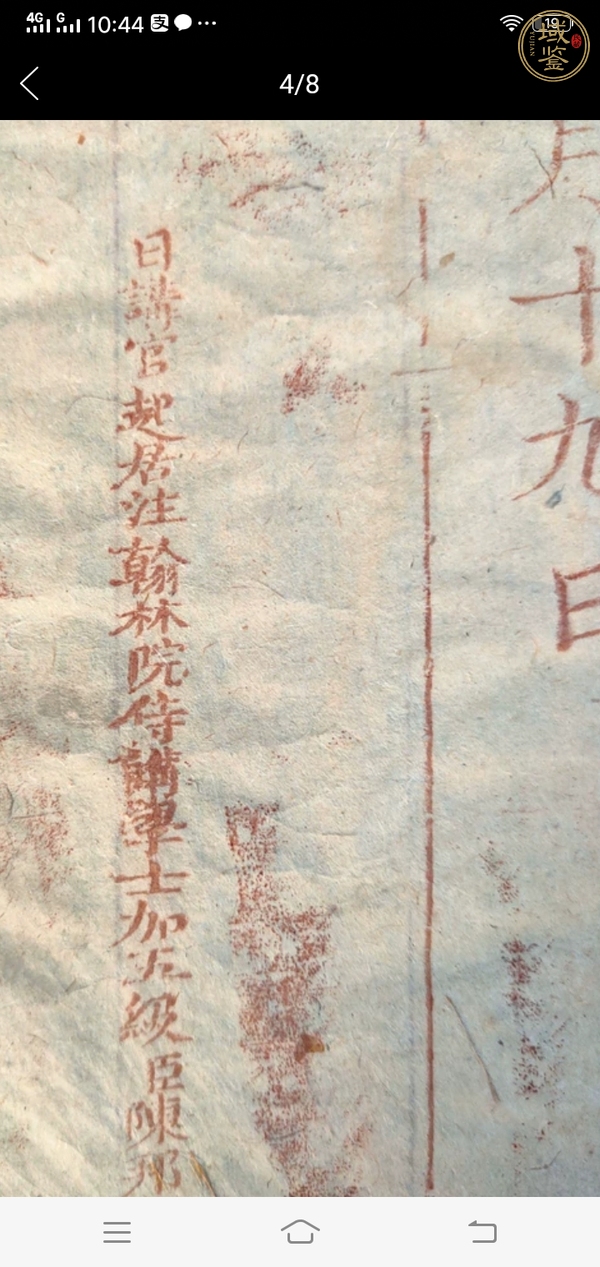 4G G 10:44 支 19
域鉴
YUJIAN
4/8
月十九日
日講官起居注翰林院侍講學士加五級臣陳邦